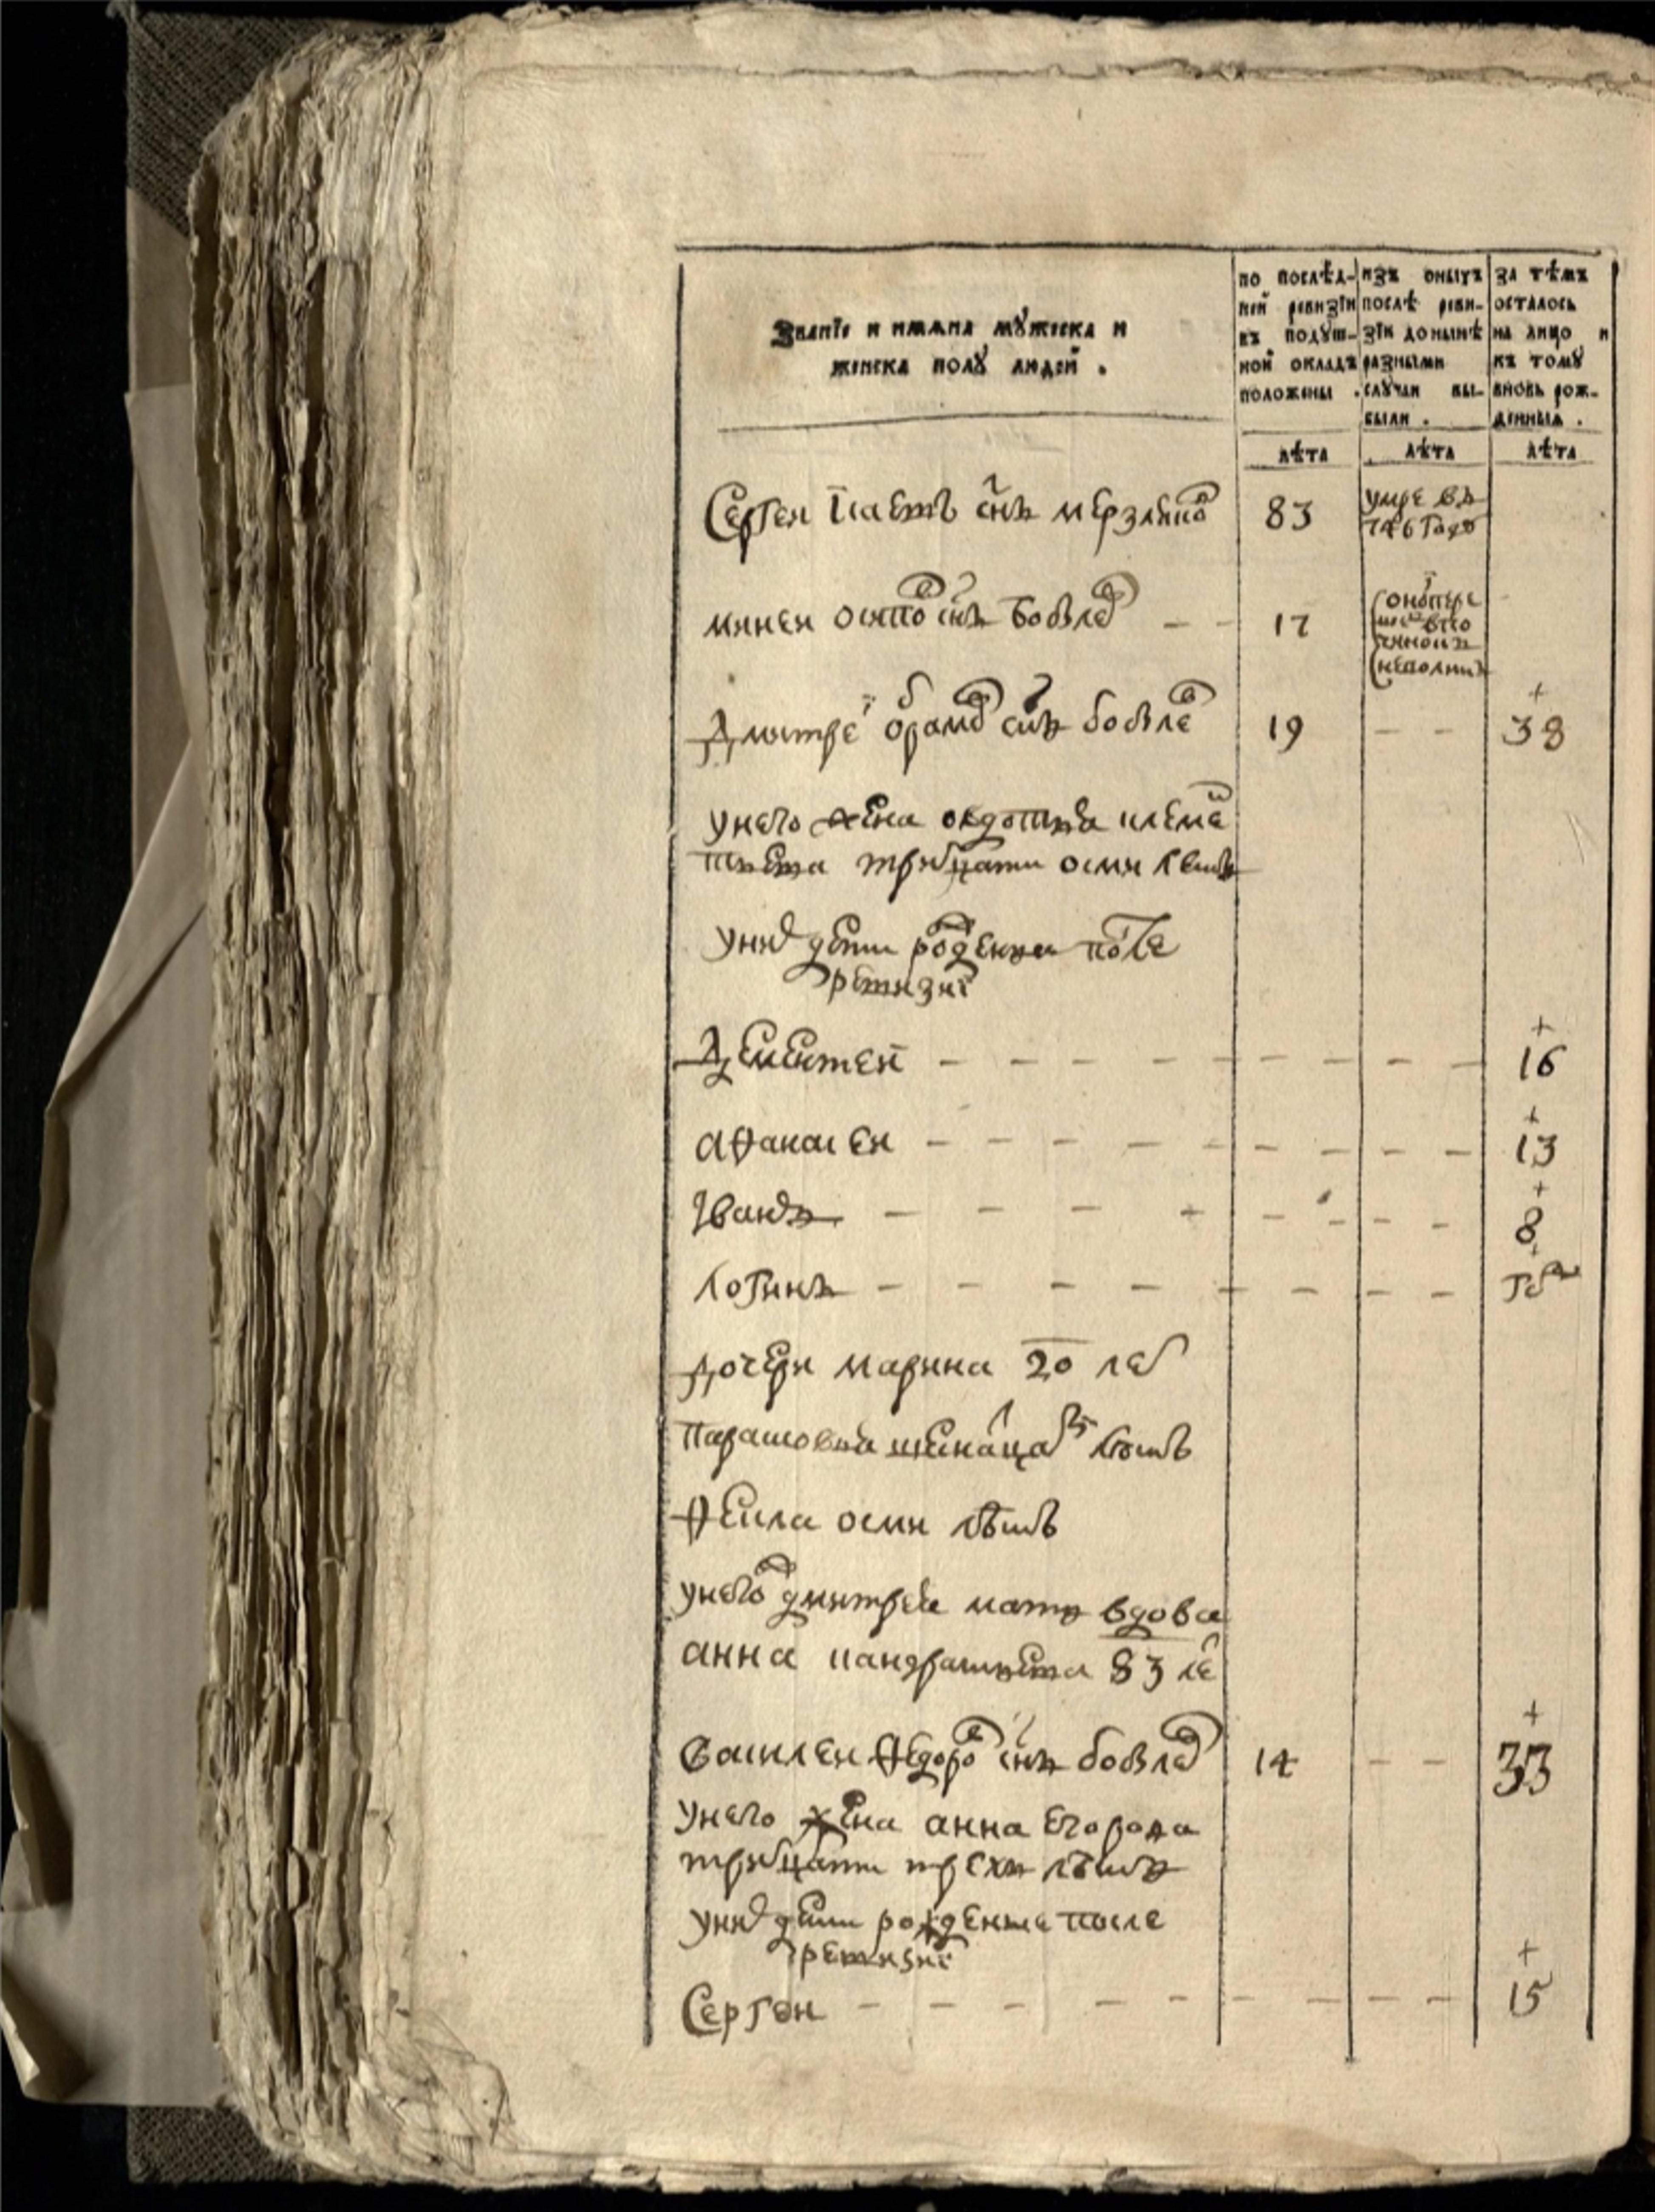 Званїе и имѧна мꙋжеска и
женска полꙋ людей .
по послѣд-
ней ревизїи
въ подꙋш-
ной окладъ
положены .
изъ оныхъ
послѣ реви-
зїи донынѣ
разными
слꙋчаи вы-
были .
за тѣмъ
осталось
на лицо и
къ тому
вновь рож-
денныѧ .
лѣта лѣта лѣта
Сергеи снъ мерзляко 83 умре въ
746 годꙋ
минеи осипо снъ бовле 17
Дмитре снъ бовле 19 38
унего жена овдотья клеме
тьева тритцати осми летъ
уних дети рожденыи после
ревизиї
Дементеи 16
аѳанасеи 13
Іванъ 8
логинъ
дочери марина 20 лет
парасковья летъ
Ѳекла осми лѣтъ
унего дмитрея мать вдова
анна пандратьева 83 ле
василеи Ѳедоро снъ бовле 14 33
унего жена анна егорова
тритцати трехъ лѣтъ
уних дети рожденые после
ревизиї
Сергеи 15